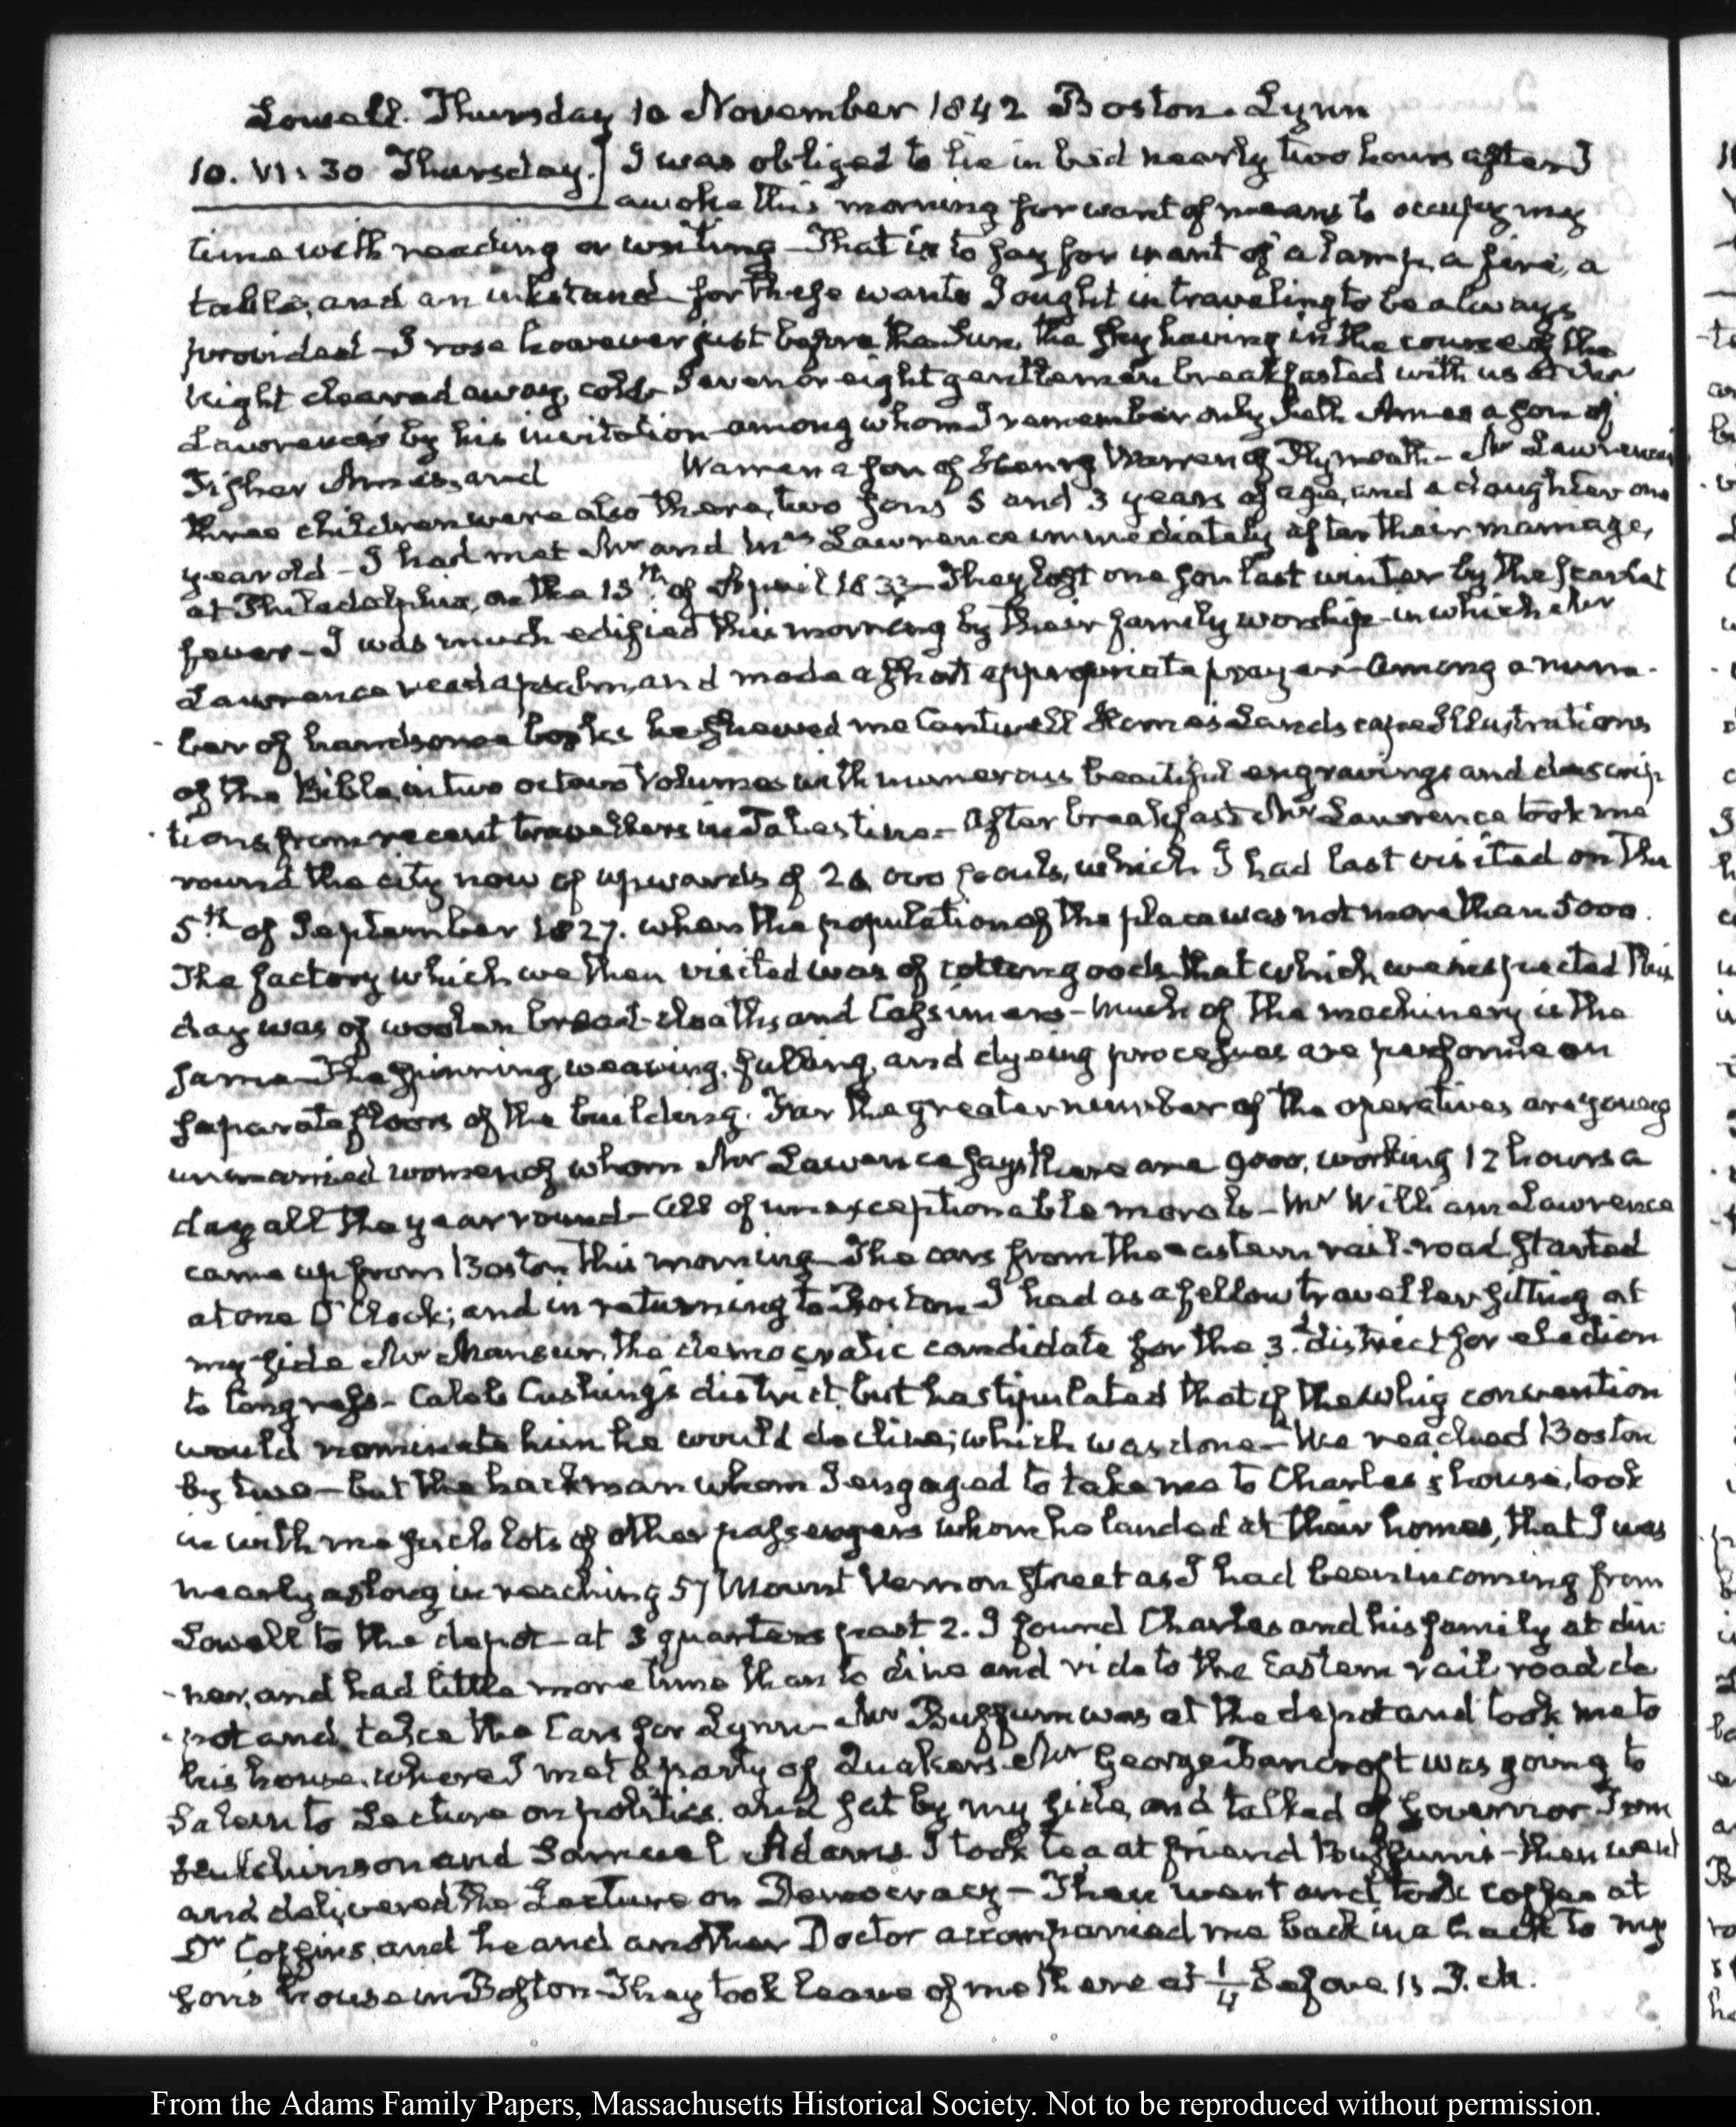 Lowell. Thursday 10 November 1842 Boston. Lynn
10. VI: 30 Thursday. I was obliged to lie in bed nearly two hours after I
awoke this morning for want of means to occupy my
time with reading or writing – That is to say for want of a lamp, a fire, a
table, and an inkstand for these wants I ought in traveling to be always
provided – I rose however just before the Sun, the sky having in the course of the
night cleared away, cold. Seven or eight gentlemen breakfasted with us at Mr
Lawrence's by his invitation among whom I remember only Seth Ames a son of
Fisher Ames, and Warren a son of Henry Warren of Plymouth – Mr Lawrence's
three children were also there, two sons 5 and 3 years of age, and a daughter one
year old – I had met Mr and Mrs Lawrence immediately after their marriage,
at Philadelphia, on the 13th of April 1833 – They lost one son last winter by the scarlet
fever – I was much edified this morning by their family worship – in which Mr
Lawrence read a psalm, and made a short appropriate prayer – Among a num-
ber of handsome books he shewed me Landscape Illustrations
of the Bible, in two octavo Volumes with numerous beautiful engravings and descrip
tions from recent travellers in Palestine – After breakfast Mr Lawrence took me
round the city now of upwards of 20 000 souls, which I had last visited on the
5th of September 1827. when the population of the place was not more than 5000.
The factory which we then visited was of cotton goods – that which we inspected this
day was of woolen broad-cloaths and Cassimers – Much of the machinery is the
same – The spinning, weaving, fulling, and dyeing processes are performe on
separate floors of the building. Far the greater number of the operatives are young
unmarried women of whom Mr Lawrence says there are 9000, working 12 hours a
day all the year round – All of unexceptionable morals – Mr William Lawrence
came up from Boston this morning – The cars from the eastern rail-road started
at one O'Clock; and in returning to Boston I had as a fellow traveller sitting at
my side Mr Mansur, the democratic candidate for the 3.d district for election
to Congress – Caleb Cushing's district, but he stipulated that if the Whig convention
would nominate him he would decline; which was done – We reached Boston
by two – but the hackman whom I engaged to take me to Charles's house, took
in with me such lots of other passengers whom he landed at their homes, that I was
nearly as long in reaching 57 Mount Vernon Street as I had been in coming from
Lowell to the depot – at 3 quarters past 2. I found Charles and his family at din
ner, and had little more time than to dine and ride to the Eastern rail road de
pot and take the Cars for Lynn – Mr Buffum was at the depot and took me to
his house, where I met a party of Quakers. Mr George Bancroft was going to
Salem to Lecture on politics. and sat by my side, and talked of Governor Tom
Hutchinson and Samuel Adams. I took tea at friend Buffum's – then went
and delivered the Lecture on Democracy – Then went and took coffee at
Dr Coffin's, and he and another Doctor accompanied me back in a hack to my
son's house in Boston – They took leave of me there at 1/4 before 11 P.M.
From the Adams Family Papers, Massachusetts Historical Society. Not to be reproduced without permission.